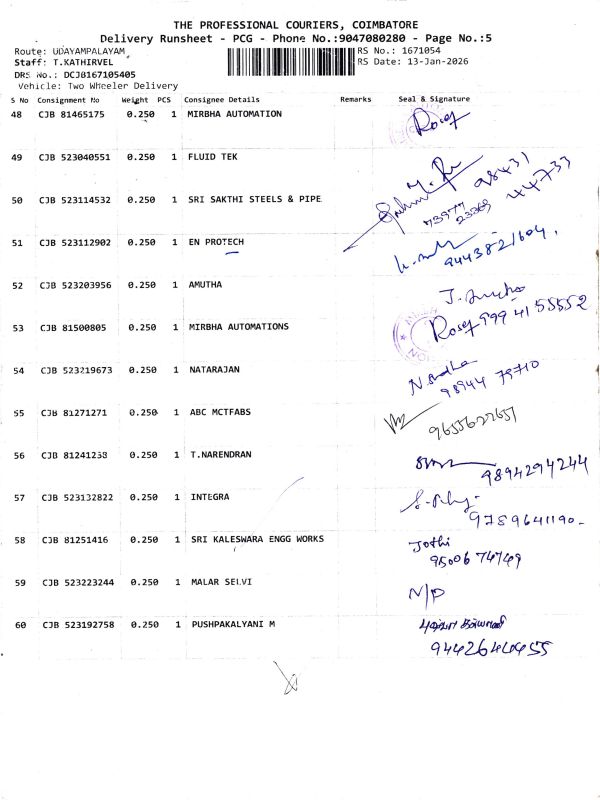 THE PROFESSIONAL COURIERS, COIMBATORE
Delivery Runsheet - PCG - Phone No.:9047080280 - Page No.:5
Route: UDAYAMPALAYAM RS No.: 1671054
Staff: T.KATHIRVEL RS Date: 13-Jan-2026
DRS No.: DCJ8167105405
Vehicle: Two Wheeler Delivery
S No Consignment No Weight PCS Consignee Details Remarks Seal & Signature
48 CJB 81465175 0.250 1 MIRBHA AUTOMATION Rosy
49 CJB 523040551 0.250 1 FLUID TEK 98431 44733
50 CJB 523114532 0.250 1 SRI SAKTHI STEELS & PIPE 73977 23369
51 CJB 523112902 0.250 1 EN PROTECH 9443821604.
52 CJB 523203956 0.250 1 AMUTHA
53 CJB 81500805 0.250 1 MIRBHA AUTOMATIONS Rosy 99941 55552
54 CJB 523219673 0.250 1 NATARAJAN 98944 79710
55 CJB 81271271 0.250 1 ABC MCTFABS 9655627657
56 CJB 81241253 0.250 1 T.NARENDRAN 9894294244
57 CJB 523132822 0.250 1 INTEGRA 9789641190-
58 CJB 81251416 0.250 1 SRI KALESWARA ENGG WORKS Jothi 95006 74749
59 CJB 523223244 0.250 1 MALAR SELVI N/P
60 CJB 523192758 0.250 1 PUSHPAKALYANI M 9442646455